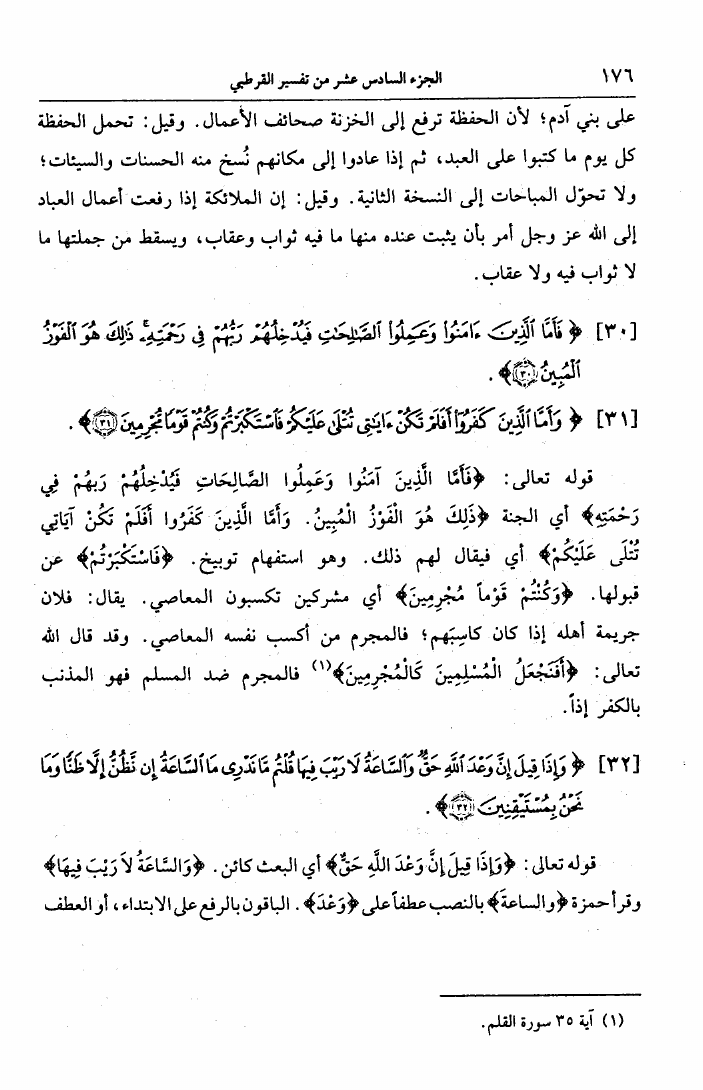 ١٧٦ الجزء السادس عشر من تفسير القرطبي
على بني آدم؛ لأن الحفظة ترفع إلى الخزنة صحائف الأعمال. وقيل: تحمل الحفظة
كل يوم ما كتبوا على العبد، ثم إذا عادوا إلى مكانهم نُسخ منه الحسنات والسيئات؛
ولا تحوّل المباحات إلى النسخة الثانية. وقيل: إن الملائكة إذا رفعت أعمال العباد
إلى الله عز وجل أمر بأن يثبت عنده منها ما فيه ثواب وعقاب، ويسقط من جملتها ما
لا ثواب فيه ولا عقاب.
[٣٠] ﴿ فَأَمَّا ٱلَّذِينَ ءَامَنُوا۟ وَعَمِلُوا۟ ٱلصَّـٰلِحَـٰتِ فَيُدْخِلُهُمْ رَبُّهُمْ فِى رَحْمَتِهِۦۚ ذَٰلِكَ هُوَ ٱلْفَوْزُ
ٱلْمُبِينُ ٣٠ ﴾.
[٣١] ﴿ وَأَمَّا ٱلَّذِينَ كَفَرُوٓا۟ أَفَلَمْ تَكُنْ ءَايَـٰتِى تُتْلَىٰ عَلَيْكُمْ فَٱسْتَكْبَرْتُمْ وَكُنتُمْ قَوْمًا مُّجْرِمِينَ ٣١ ﴾.
قوله تعالى: ﴿فَأَمَّا الَّذِينَ آمَنُوا وَعَمِلُوا الصَّالِحَاتِ فَيُدْخِلُهُمْ رَبهُمْ فِي
رَحْمَتِهِ﴾ أي الجنة ﴿ذَلِكَ هُوَ الْفَوْزُ الْمُبِينُ. وَأَمَّا الَّذِينَ كَفَرُوا أَفَلَمْ تَكُنْ آيَاتِي
تُتْلَى عَلَيْكُمْ﴾ أي فيقال لهم ذلك. وهو استفهام توبيخ. ﴿فَاسْتَكْبَرْتُمْ﴾ عن
قبولها. ﴿وَكُنْتُمْ قَوْماً مُجْرِمِينَ﴾ أي مشركين تكسبون المعاصي. يقال: فلان
جريمة أهله إذا كان كاسِبَهم؛ فالمجرم من أكسب نفسه المعاصي. وقد قال الله
تعالى: ﴿أَفَنَجْعَلُ الْمُسْلِمِينَ كَالْمُجْرِمِينَ﴾(١) فالمجرم ضد المسلم فهو المذنب
بالكفر إذاً.
[٣٢] ﴿ وَإِذَا قِيلَ إِنَّ وَعْدَ ٱللَّهِ حَقٌّ وَٱلسَّاعَةُ لَا رَيْبَ فِيهَا قُلْتُم مَّا نَدْرِى مَا ٱلسَّاعَةُ إِن نَّظُنُّ إِلَّا ظَنًّا وَمَا
نَحْنُ بِمُسْتَيْقِنِينَ ٣٢ ﴾.
قوله تعالى: ﴿وَإِذَا قِيلَ إِنَّ وَعْدَ اللَّهِ حَقٌّ﴾ أي البعث كائن. ﴿وَالسَّاعَةُ لاَ رَيْبَ فِيهَا﴾
وقرأ حمزة ﴿والساعةَ﴾ بالنصب عطفاً على ﴿وَعْدَ﴾. الباقون بالرفع على الابتداء، أو العطف
(١) آية ٣٥ سورة القلم.